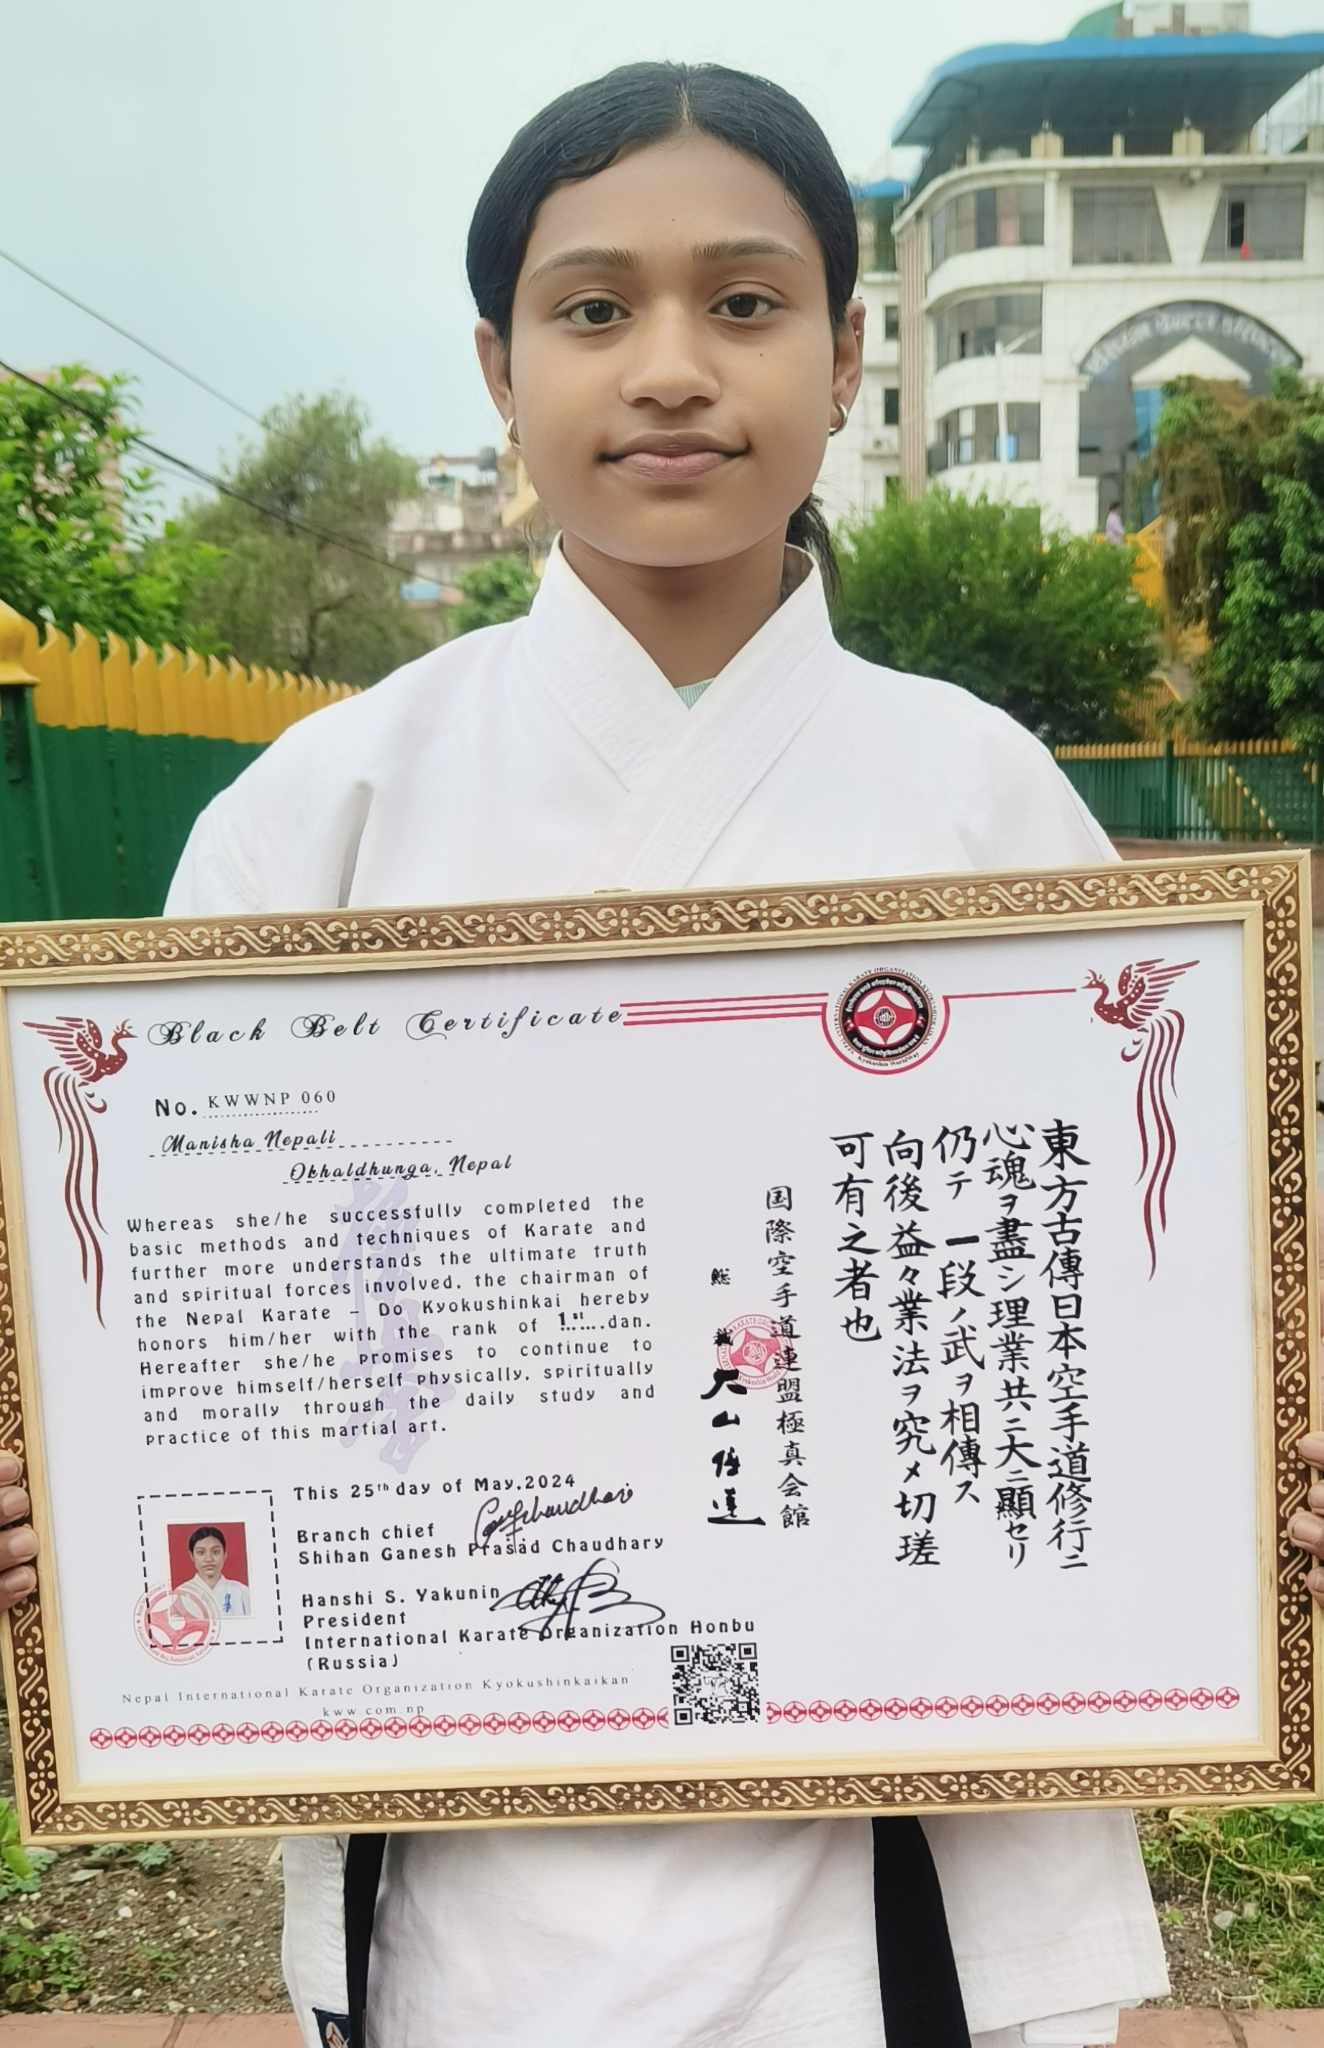 Black Belt Certificate
No. KWWNP 060
Manisha Nepali
Okhaldhunga, Nepal
Whereas she/he successfully completed the
basic methods and techniques of Karate and
further more understands the ultimate truth
and spiritual forces involved, the chairman of
the Nepal Karate – Do Kyokushinkai hereby
honors him/her with the rank of 1st dan.
Hereafter she/he promises to continue to
improve himself/herself physically, spiritually
and morally through the daily study and
practice of this martial art.
This 25th day of May,2024
Branch chief
Shihan Ganesh Prasad Chaudhary
Hanshi S. Yakunin
President
International Karate Organization Honbu
(Russia)
Nepal International Karate Organization Kyokushinkaikan
kww.com.np
東方古傳日本空手道修行ニ
心魂ヲ盡シ理業共ニ大ニ顯セリ
仍テ一段ノ武ヲ相傳ス
向後益々業法ヲ究メ切瑳
可有之者也
国際空手道連盟極真会館
大山倍達